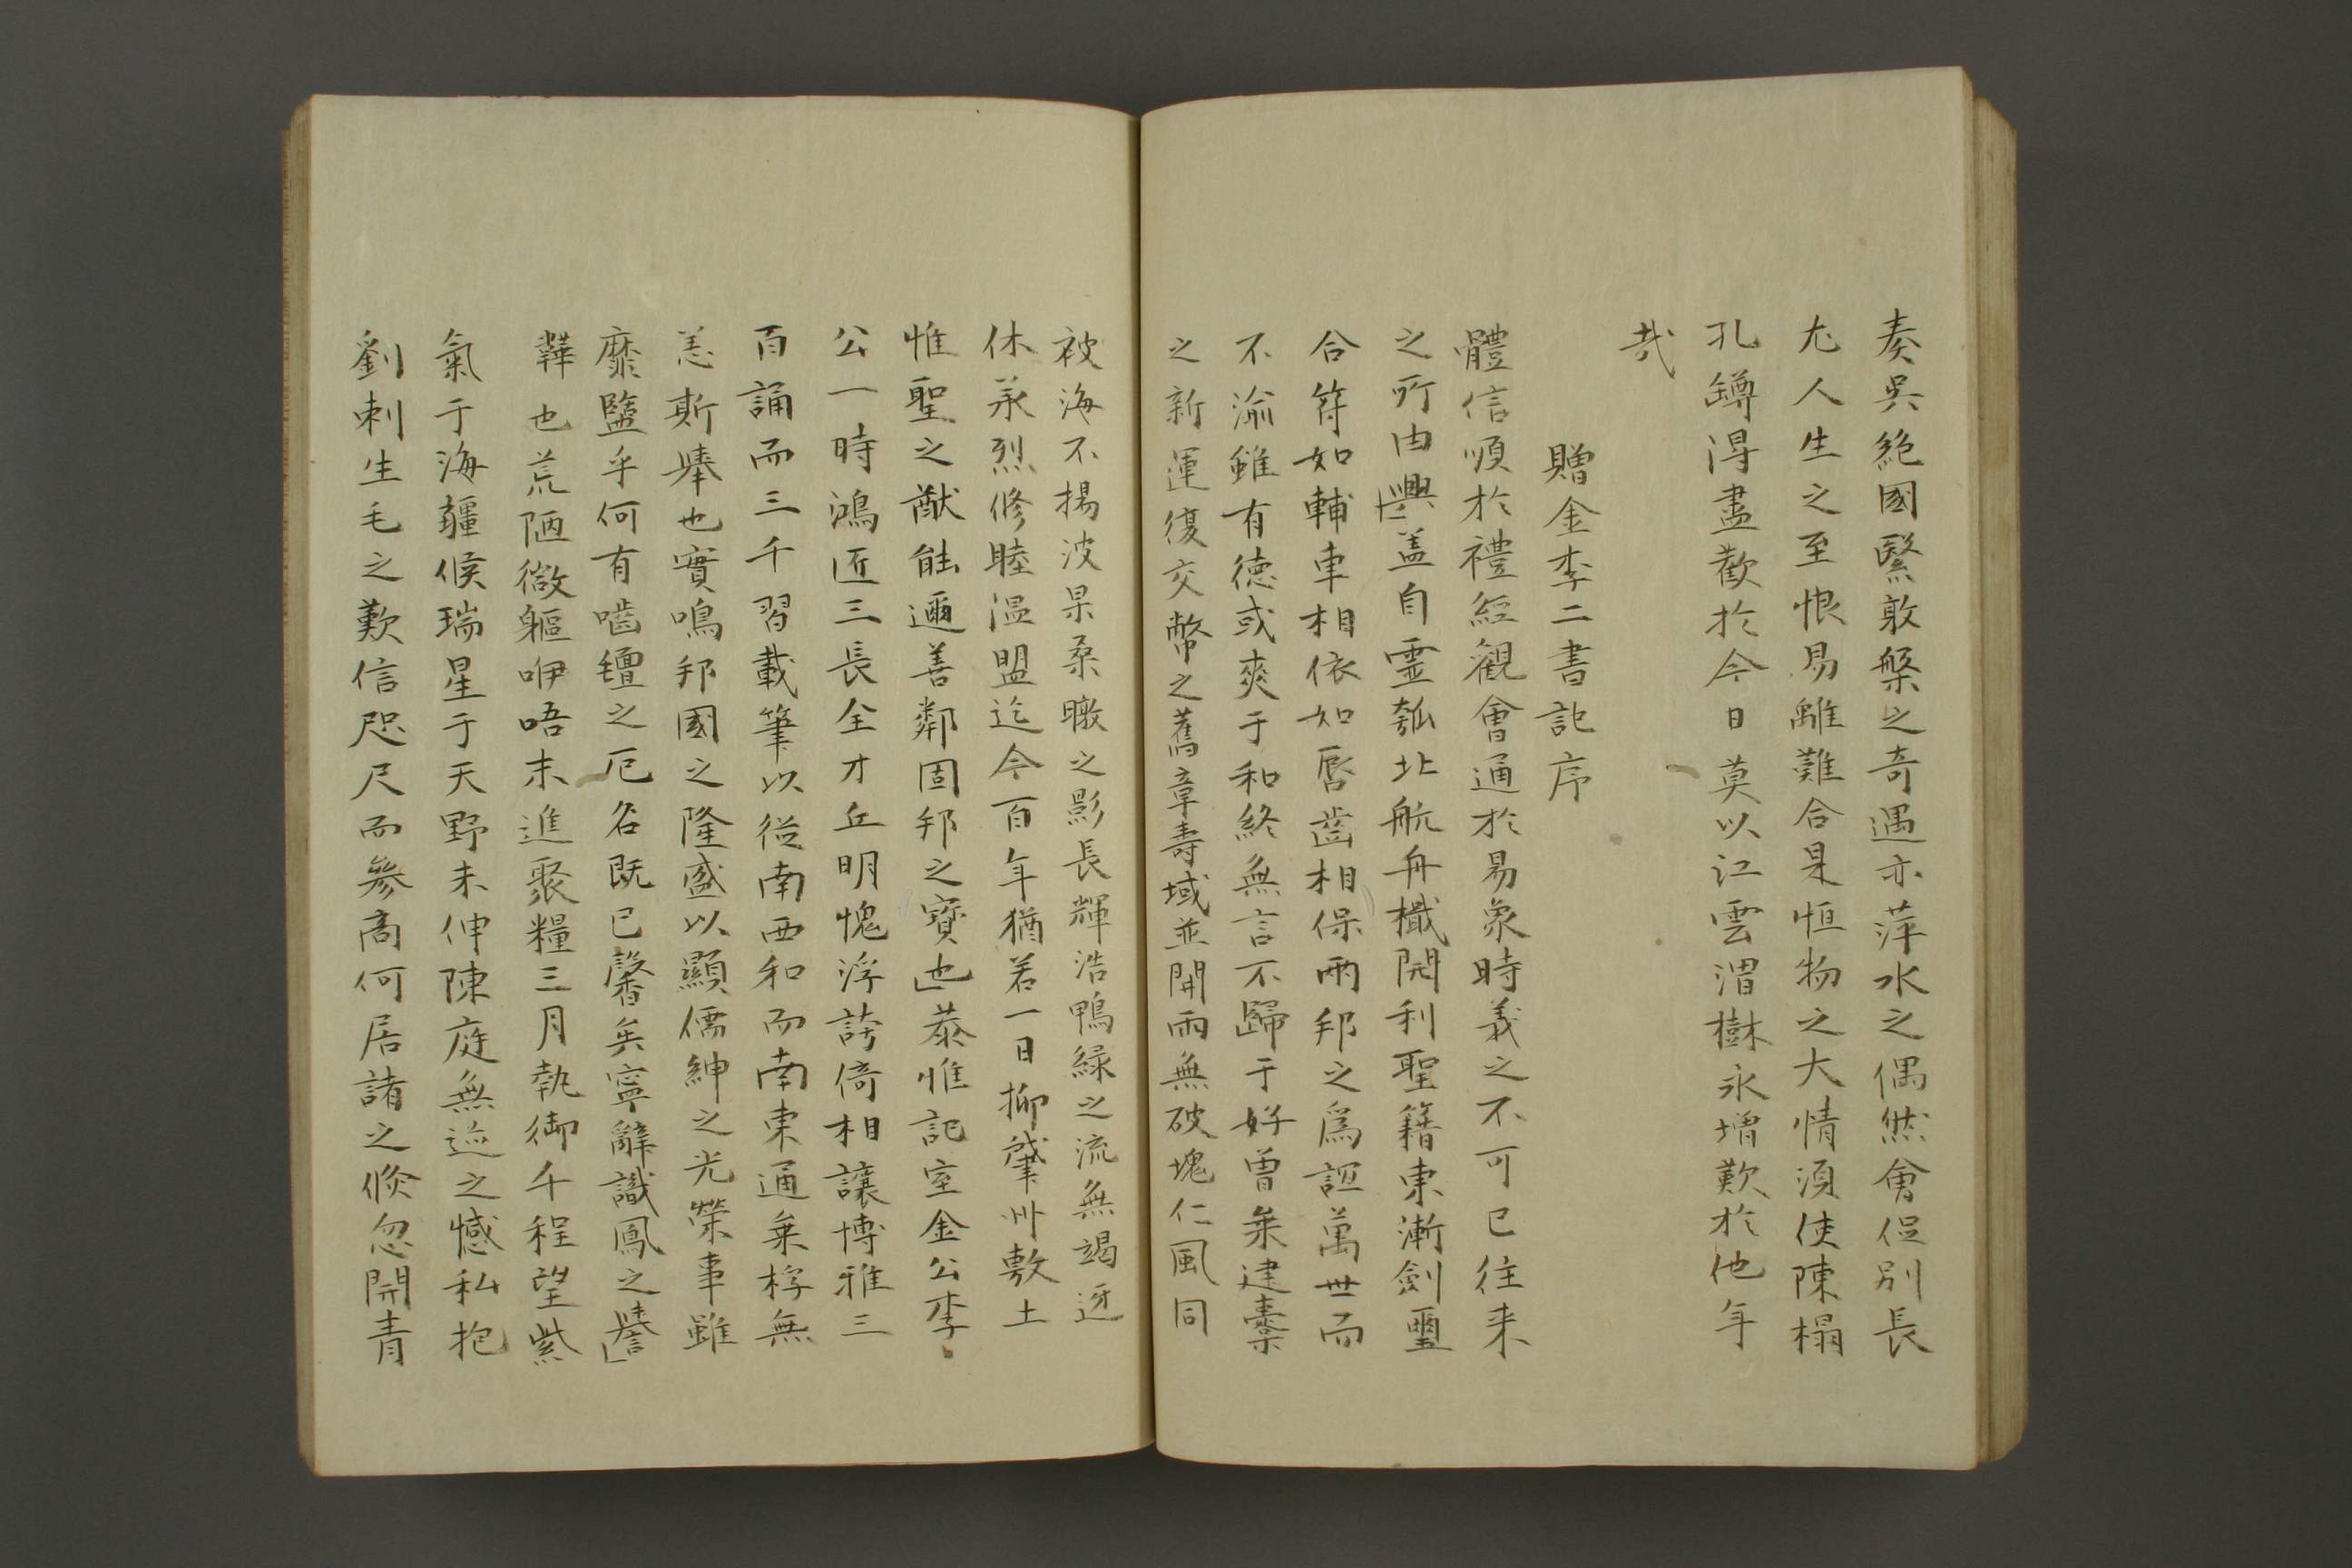 奏吳絶國緊敢槃之奇遇亦萍水之偶然會促別長
尤人生之至恨易離難合是恒物之大情須使陳榻
孔罇淂盡歡於今日莫以江雲渭樹永增歎於他年
㢤
贈金李二書記序
體信順於禮經觀會通於易象時義之不可已往来
之所由興蓋自霊瓠北航舟檝開利聖籍東漸劍璽
合符如輔車相依如唇齒相保兩邦之爲誼萬世而
不渝雖有徳或爽于和終無言不歸于好曽乗建櫜
之新運復交幣之舊章壽域並開雨無破塊仁風同
被海不揚波杲桑暾之影長輝浩鴨緑之流無竭迓
休承烈修睦温盟迄今百年猶若一日抑肇州敷土
惟聖之猷能邇善鄰固邦之寶也恭惟記室金公李
公一時鴻匠三長全才丘明愧浮誇倚相讓博雅三
百誦而三千習載筆以従南西和而南東通乗桴無
恙斯舉也實鳴邦國之隆盛以顯儒紳之光榮事雖
靡盬乎何有嚙氊之厄名既已馨矣寧辭識鳳之譽
韡也荒陋微軀咿唔末進聚糧三月執御千程望紫
氣于海疆候瑞星于天野未伸陳庭無迹之憾私抱
劉刺生毛之歎信咫尺而參商何居諸之倏忽開青